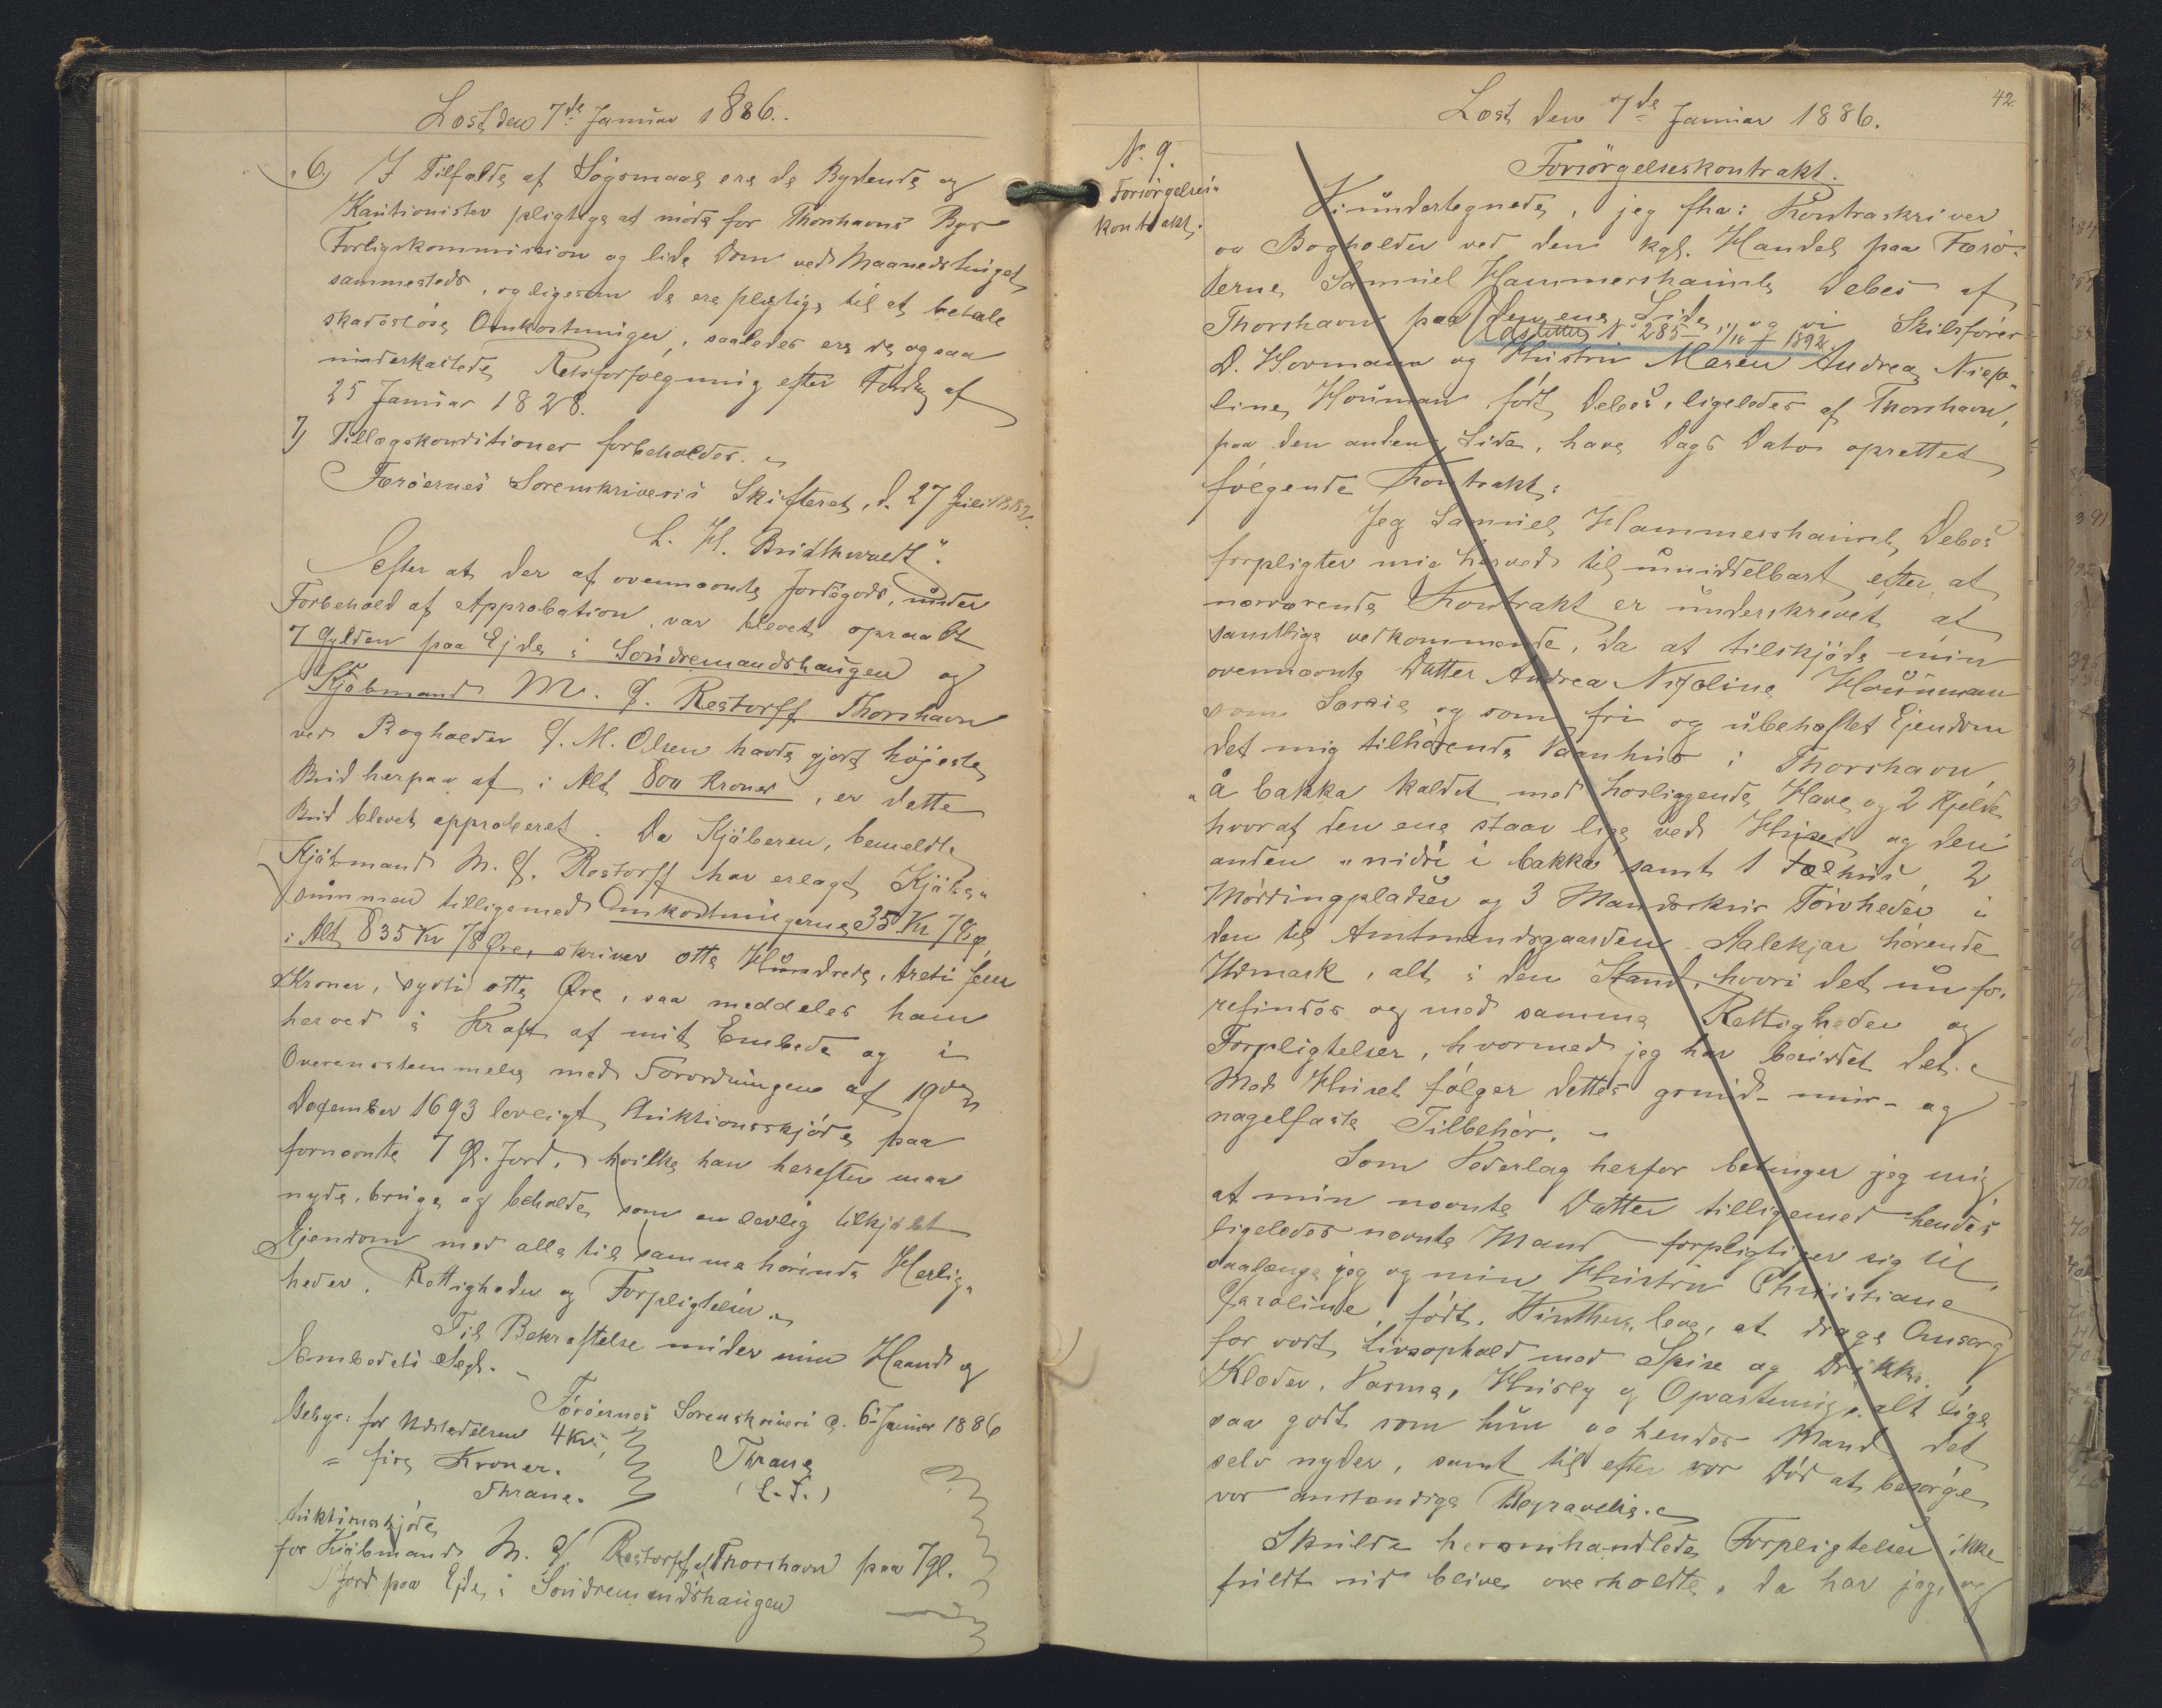 Læst den 7de Januar 1886.
6) I Tilfælde af Søgsmaal ere de Bydende og
Kautionister pligtige at møde for Thorshavns Byes
Forligskommission og lide Dom ved Maanedstinget
sammesteds, og ligesom de ere pligtige til at betale
skadesløse Omkostninger, saaledes ere de ogsaa
underkastede Retsforfølgning efter Frdng af
25 Januar 1828.
7) Tillægskonditioner forbeholdes.
Færøernes Sorenskriveris Skifteret, d. 27 Juli 1882.
L. H. Bridthwaldt."
Efter at der af ovennævnte Jordegods, under
Forbehold af Approbation, var blevet opraabt
7 Gylden paa Ejde i Søndremandshaugen og
Kjøbmand M. C. Restorff Thorshavn
ved Bogholder J. M. Olsen havde gjort højeste
Bud herpaa af i Alt 800 Kroner, er dette
Bud blevet approberet. Da Kjøberen, bemeldte
Kjøbmand M. C. Restorff har erlagt Kjøbe"
summen tilligemed Omkostningerne 35 Kr 78 Ø
i Alt 835 Kr 78 Øre, skriver otte Hundrede, treti fem
Kroner, sytti otte Øre, saa meddeles ham
herved i Kraft af mit Embede og i
Overensstemmelse med Forordningen af 19de
December 1693 lovligt Auktionsskjøde paa
fornævnte 7 Gl. Jord, hvilke han herefter maa
nyde, bruge og beholde som en lovlig tilkjøbt
Ejendom med alle til samme hørende Herlig"
heder, Rettigheder og Forpligtelser.
Til Bekræftelse under min Haand og
Embedets Segl.
Færøernes Sorenskriveri d. 6 Januar 1886
Gebyr: for Udstedelsen 4 Kr.
= fire Kroner.
Thrane
Thrane.
(L.S.)
Auktionsskjøde
for Kjøbmand M. C. Restorff af Thorshavn paa 7 gl.
Jord paa Ejde i Søndremandshaugen
42
Læst den 7de Januar 1886.
No 9.
Forsørgelses"
kontrakt.
Forsørgelseskontrakt.
Vi undertegnede, jeg fhv: Kontraskriver
og Bogholder ved den kgl. Handel paa Færø-
erne Samuel Hammershaimb Debes af
Thorshavn paa den ene Side, og vi Skibsfører
Udslettet No 285 1/10 1892.
D. Hovmann og Hustru Maren Andrea Nico"
line Houmann født Debes, ligeledes af Thorshavn,
paa den anden Side, have Dags Dato oprettet
følgende Kontrakt:
Jeg Samuel Hammershaimb Debes
forpligter mig herved til umiddelbart, efter at
nærværende Kontrakt er underskrevet af
samtlige vedkommende, da at tilskjøde min
ovennævnte Datter Andrea Nicoline Houmann
som Særeie og som fri og ubehæftet Ejendom
det mig tilhørende Vaanhus i Thorshavn,
"á bakka" kaldet med hosliggende Have og 2 Kjelde
hvoraf den ene staar lige ved Huset og den
anden "nidri i bakka" samt 1 Fæhus, 2
Møddingpladser og 3 Mandsskur Tørvheder i
den til Amtmandsgaarden Aalekjær hørende
Udmark, alt i den Stand, hvori det nu fo-
refindes og med samme Rettigheder og
Forpligtelser, hvormed jeg har besiddet det.
Med Huset følger dettes grund- mur- og
nagelfaste Tilbehør. -
Som Vederlag herfor betinger jeg mig,
at min nævnte Datter tilligemed hendes
ligeledes nævnte Mand forpligtiger sig til,
saalænge jeg og min Hustru Christiane
Caroline, født. Winther, leve, at drage Omsorg
for vort Livsophold med Spise og Drikke,
Klæder, Varme, Husly og Opvartning, alt lige
saa godt som hun og hendes Mand det
selv nyder, samt til efter vor Død at besørge
vor anstændige Begravelse.
Skulde heromhandlede Forpligtelser ikke
fuldt ud blive overholdte, da har jeg, og